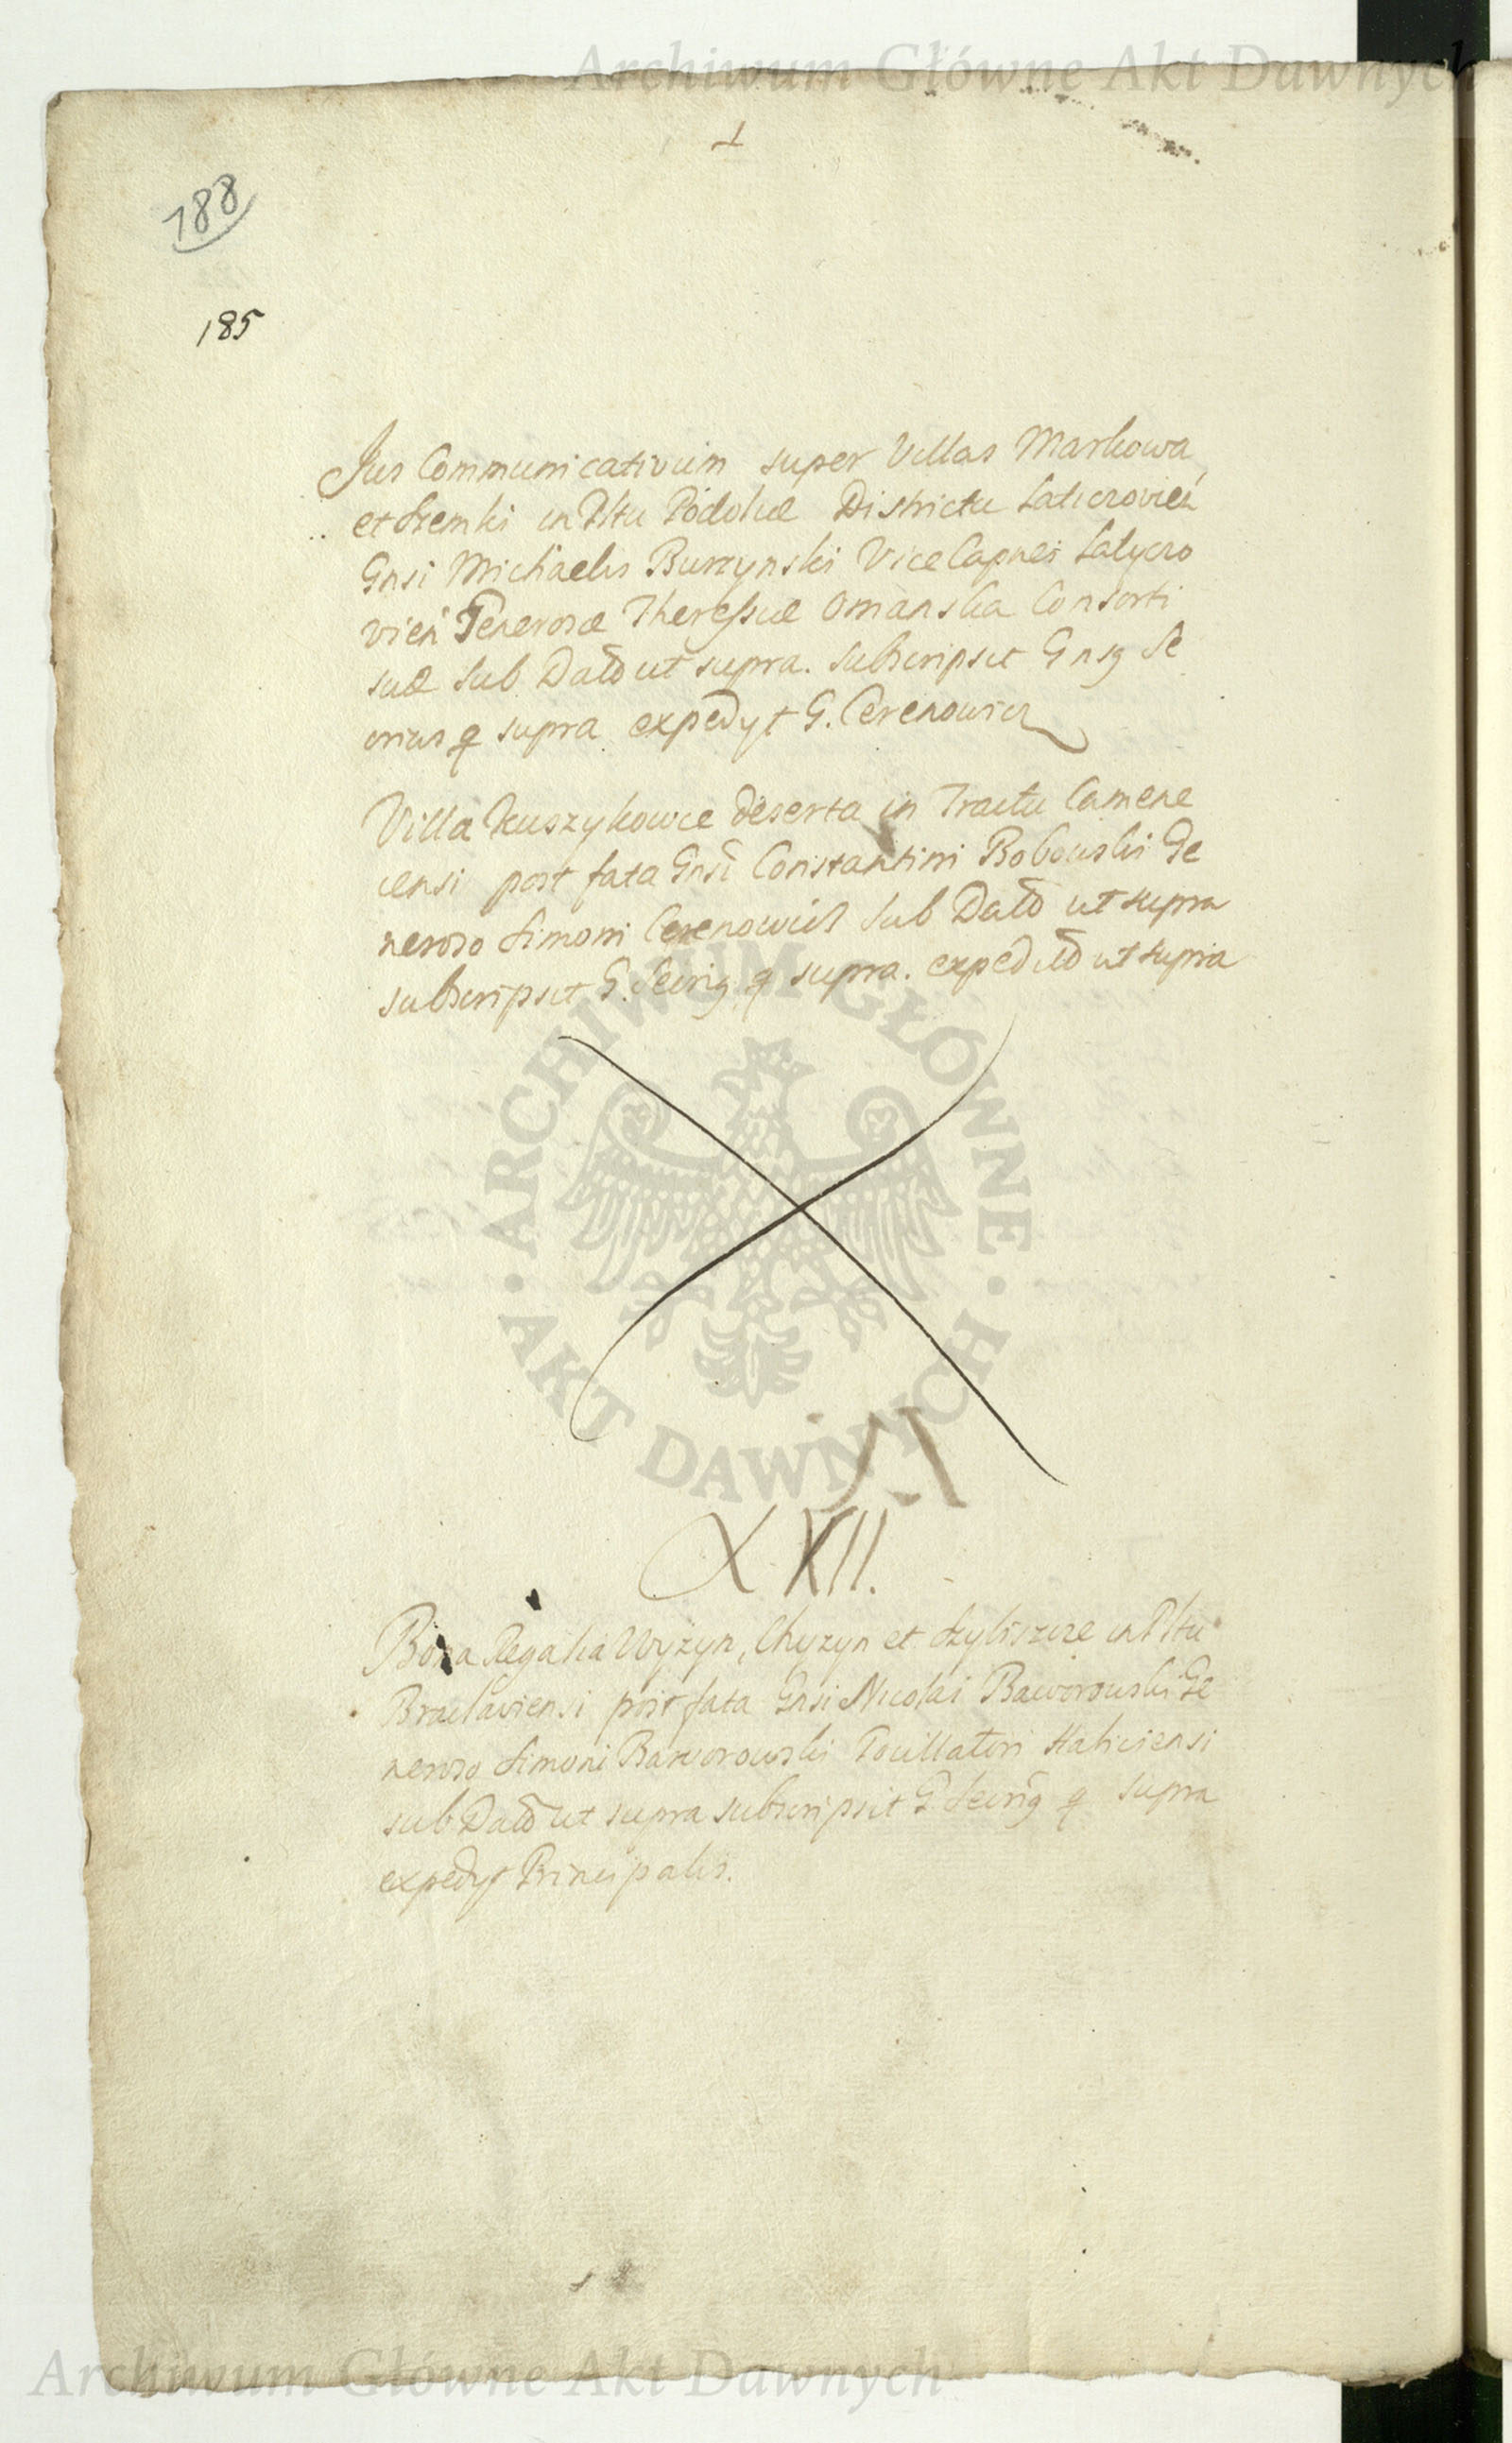 Archiwum Główne Akt Dawnych
188
185
Jus Communicativum super Villas Markowa
et Stemki in Pltu Podoliæ Districtu Laticzovień
Gnsi Michaelis Burzynski Vice Capnei Latyczo
vień Generosæ Theressiæ Omanska Consorti
suæ Sub Datõ ut supra. Subscripsit Gnsg Se
crius q supra expedyt G. Cerenowicz
Villa Kuszykowce deserta in Tractu Camene
censi post fata Gnsi Constantini Bobowski Ge
neroso Simoni Cerenowicz Sub Datõ ut supra
subscripsit G. Secrig q supra. expeditõ ut supra
ARCHIWUM GŁÓWNE · AKT DAWNYCH ·
XXII.
Bona Regalia Wyzyn, Chyzyn et Szyliszcze in Pltu
Braclaviensi post fata Gnsi Nicolai Baworowski Ge
neroso Simoni Baworowski Pocillatori Haliciensi
sub Datõ ut supra subscripsit G Secrig q supra
expedyt Principalis.
Archiwum Główne Akt Dawnych